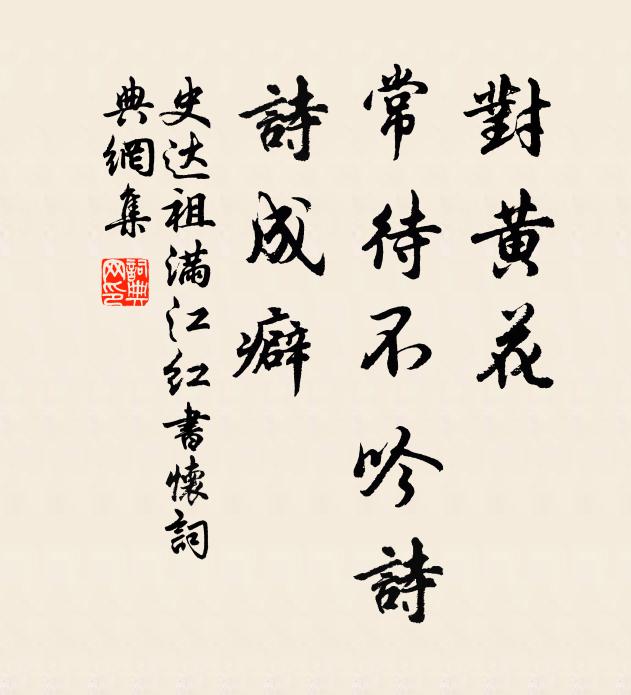 對黃花
常待不吟詩
詩成癖
史达祖滿江紅書懷詞
典網集
詞典网印